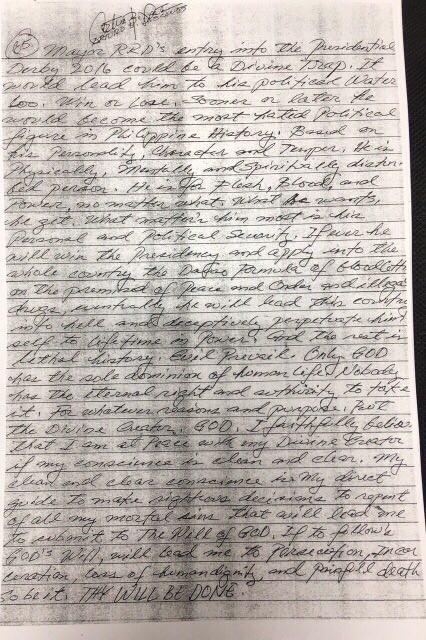 65 Mayor RRD's entry into the Presidential
Derby 2016 could be a Divine Trap. It
would lead him to his political Water
Loo. Win or Lose. Sooner or later he
would become the most hated Political
figure in Philippine History. Based on
his Personality, Character and Temper. He is
Physically, Mentally and Spiritually distur-
bed person. He is for Flesh, Blood, and
Power, no matter what. What he wants,
he get. What matters him most is his
Personal and Political Security. If ever he
will win the Presidency and apply into the
whole country the Davao Formula of bloodlett
on the premised of Peace and Order and illegal
drugs, eventually he will lead this country
into hell and deceptively perpetrate him
self to lifetime in Power. And the rest is
lethal history. Evil Prevail. Only GOD
has the sole dominion of human life. Nobody
has the eternal right and authority to take
it. For whatever reasons and purpose. But
the Divine Creator. GOD. I faithfully believe
that I am at Peace with my Divine Creator
if my conscience is clean and clear. My
clean and clear conscience is my direct
guide to make righteous decisions to repent
of all my mortal sins that will lead me
to submit to The Will of GOD. If to follow
GOD's Will, will lead me to Persecution, Incar
ceration, loss of human dignity, and painful death
So be it. THY WILL BE DONE.